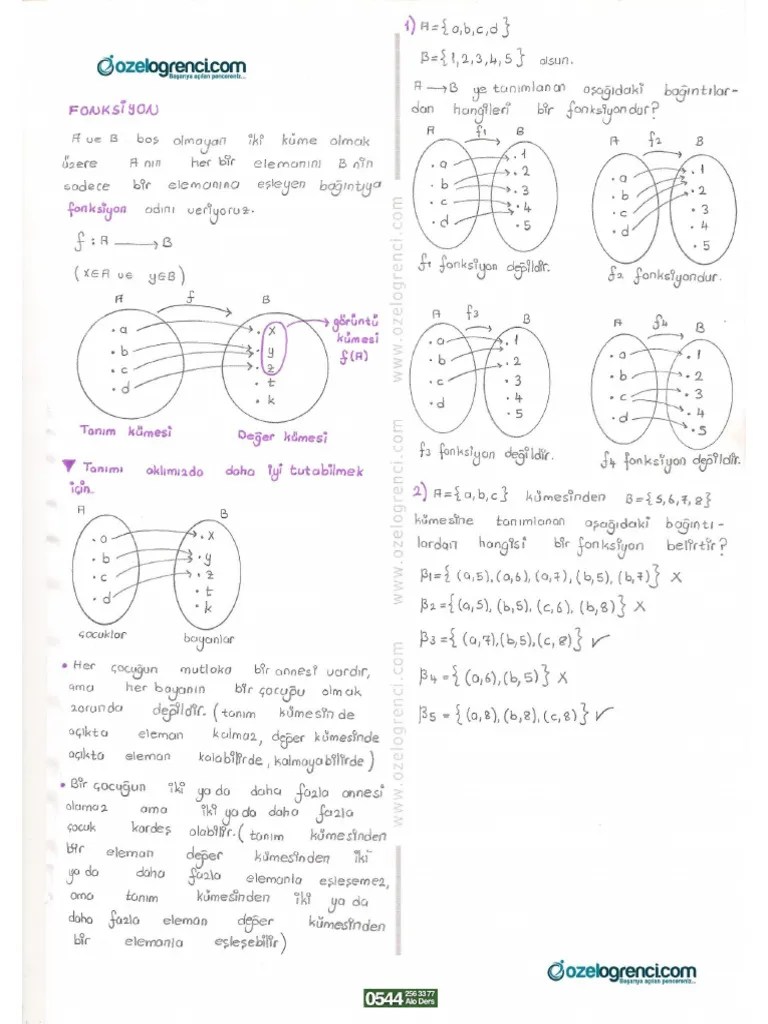 ozelogrenci.com
Başarıya açılan pencereniz...
FONKSİYON
A ve B boş olmayan iki küme olmak
üzere A nın her bir elemanını B nin
sadece bir elemanına eşleyen bağıntıya
fonksiyon adını veriyoruz.
f : A → B
(x∈A ve y∈B)
A f B
• a
• b
• c
• d
• x
• y
• z
• t
• k
görüntü
kümesi
f(A)
Tanım kümesi
Değer kümesi
▼ Tanımı aklımızda daha iyi tutabilmek
için.
A B
• a
• b
• c
• d
• x
• y
• z
• t
• k
çocuklar
bayanlar
• Her çocuğun mutlaka bir annesi vardır,
ama her bayanın bir çocuğu olmak
zorunda değildir. (tanım kümesinde
açıkta eleman kalmaz, değer kümesinde
açıkta eleman kalabilirde, kalmayabilirde)
• Bir çocuğun iki ya da daha fazla annesi
olamaz ama iki ya da daha fazla
çocuk kardeş olabilir. (tanım kümesinden
bir eleman değer kümesinden iki
ya da daha fazla elemanla eşleşemez,
ama tanım kümesinden iki ya da
daha fazla eleman değer kümesinden
bir elemanla eşleşebilir)
www.ozelogrenci.com
www.ozelogrenci.com
www.ozelogrenci.com
1) A={a,b,c,d}
B={1,2,3,4,5} olsun.
A → B ye tanımlanan aşağıdaki bağıntılar-
dan hangileri bir fonksiyondur?
A f1 B
• a
• b
• c
• d
• 1
• 2
• 3
• 4
• 5
f1 fonksiyon değildir.
A f2 B
• a
• b
• c
• d
• 1
• 2
• 3
• 4
• 5
f2 fonksiyondur.
A f3 B
• a
• b
• c
• d
• 1
• 2
• 3
• 4
• 5
f3 fonksiyon değildir.
A f4 B
• a
• b
• c
• d
• 1
• 2
• 3
• 4
• 5
f4 fonksiyon değildir.
2) A={a,b,c} kümesinden B={5,6,7,8}
kümesine tanımlanan aşağıdaki bağıntı-
lardan hangisi bir fonksiyon belirtir?
β1={(a,5),(a,6),(a,7),(b,5),(b,7)} X
β2={(a,5),(b,5),(c,6),(b,8)} X
β3={(a,7),(b,5),(c,8)} ✓
β4={(a,6),(b,5)} X
β5={(a,8),(b,8),(c,8)} ✓
ozelogrenci.com
Başarıya açılan pencereniz...
0544 256 33 77
Alo Ders